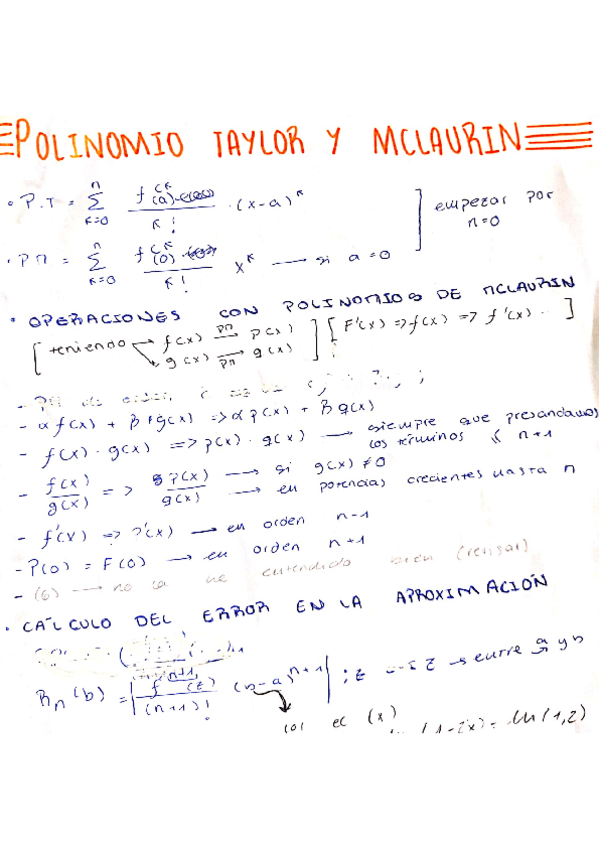 POLINOMIO TAYLOR Y MCLAURIN
• P.T = n Σ k=0 f(k (a) / k! · (x-a)^k ] empezar por n=0
• PM = n Σ k=0 f(k (0) / k! x^k → si a=0
• OPERACIONES CON POLINOMIOS DE MCLAURIN
[ teniendo f(x) PM→ p(x) ] [ F'(x) => f(x) => f'(x). ]
g(x) PM→ g(x)
- α f(x) + β g(x) => α p(x) + β g(x)
- f(x) · g(x) => p(x) · g(x) → siempre que prescindamos los términos n+1
- f(x)/g(x) => P(x)/g(x) → si g(x) ≠ 0
→ en potencias crecientes hasta n
- f'(x) => P'(x) → en orden n-1
- P(0) = F(0) → en orden n+1
- (6) → no la he entendido bien (revisar)
• CÁLCULO DEL ERROR EN LA APROXIMACIÓN
Rn(b) = | f(n+1 (z) / (n+1)! (b-a)^n+1 | ; z z → entre a y b
el (x)
(1-2x) = ln(1,2)